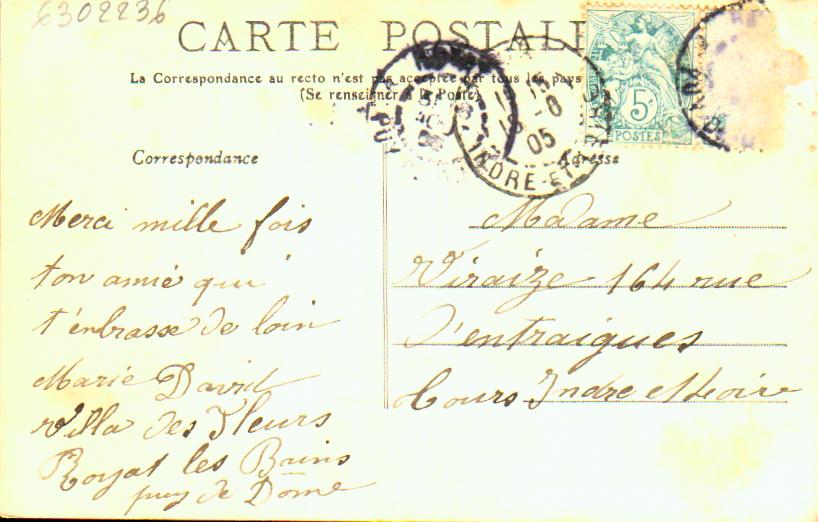 6302236
CARTE POSTALE
La Correspondance au recto n'est pas acceptée par tous les pays
(Se renseigner à la Poste)
Correspondance
Merci mille fois
ton amie qui
t'enbrasse de loin
Marie David
Villa des Fleurs
Royat les Bains
puy de Dome
Adresse
Madame
Viraize 164 rue
D'entraigues
Tours Indre et Loire
5c
POSTES
-8
05
INDRE-ET-LOIRE